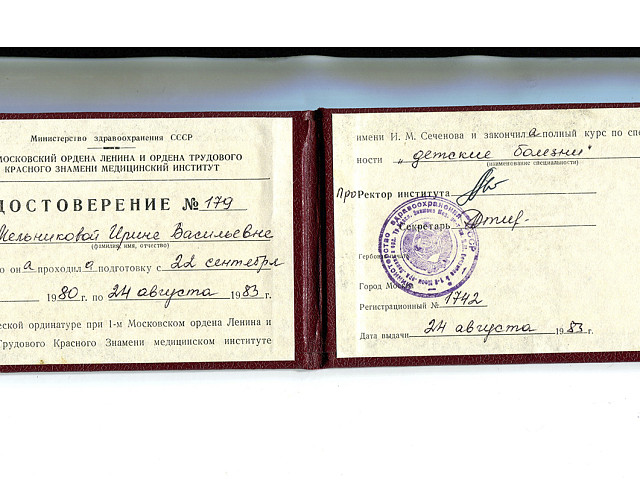 Министерство здравоохранения СССР
МОСКОВСКИЙ ОРДЕНА ЛЕНИНА И ОРДЕНА ТРУДОВОГО
КРАСНОГО ЗНАМЕНИ МЕДИЦИНСКИЙ ИНСТИТУТ
ДОСТОВЕРЕНИЕ № 179
Мельниковой Ирине Васильевне
(фамилия, имя, отчество)
о он а проходил а подготовку с 22 сентября
1980 г. по 24 августа 1983 г.
еской ординатуре при 1-м Московском ордена Ленина и
Трудового Красного Знамени медицинском институте
имени И. М. Сеченова и закончил а полный курс по спе
ности „детские болезни"
(наименование специальности)
Про Ректор института
секретарь
Город Москва
Регистрационный № 1742
Дата выдачи 24 августа 1983 г.